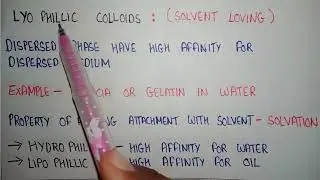 LYO PHILLIC COLLOIDS : (SOLVENT LOVING)
DISPERSED PHASE HAVE HIGH AFFINITY FOR
DISPERSED DIUM
EXAMPLE - CIA OR GELATIN IN WATER
PROPERTY OF NG ATTACHMENT WITH SOLVENT - SOLVATION
→ HYDRO PHIL - HIGH AFFINITY FOR WATER
→ LIPO PHILLIC HIGH AFFINITY FOR OIL